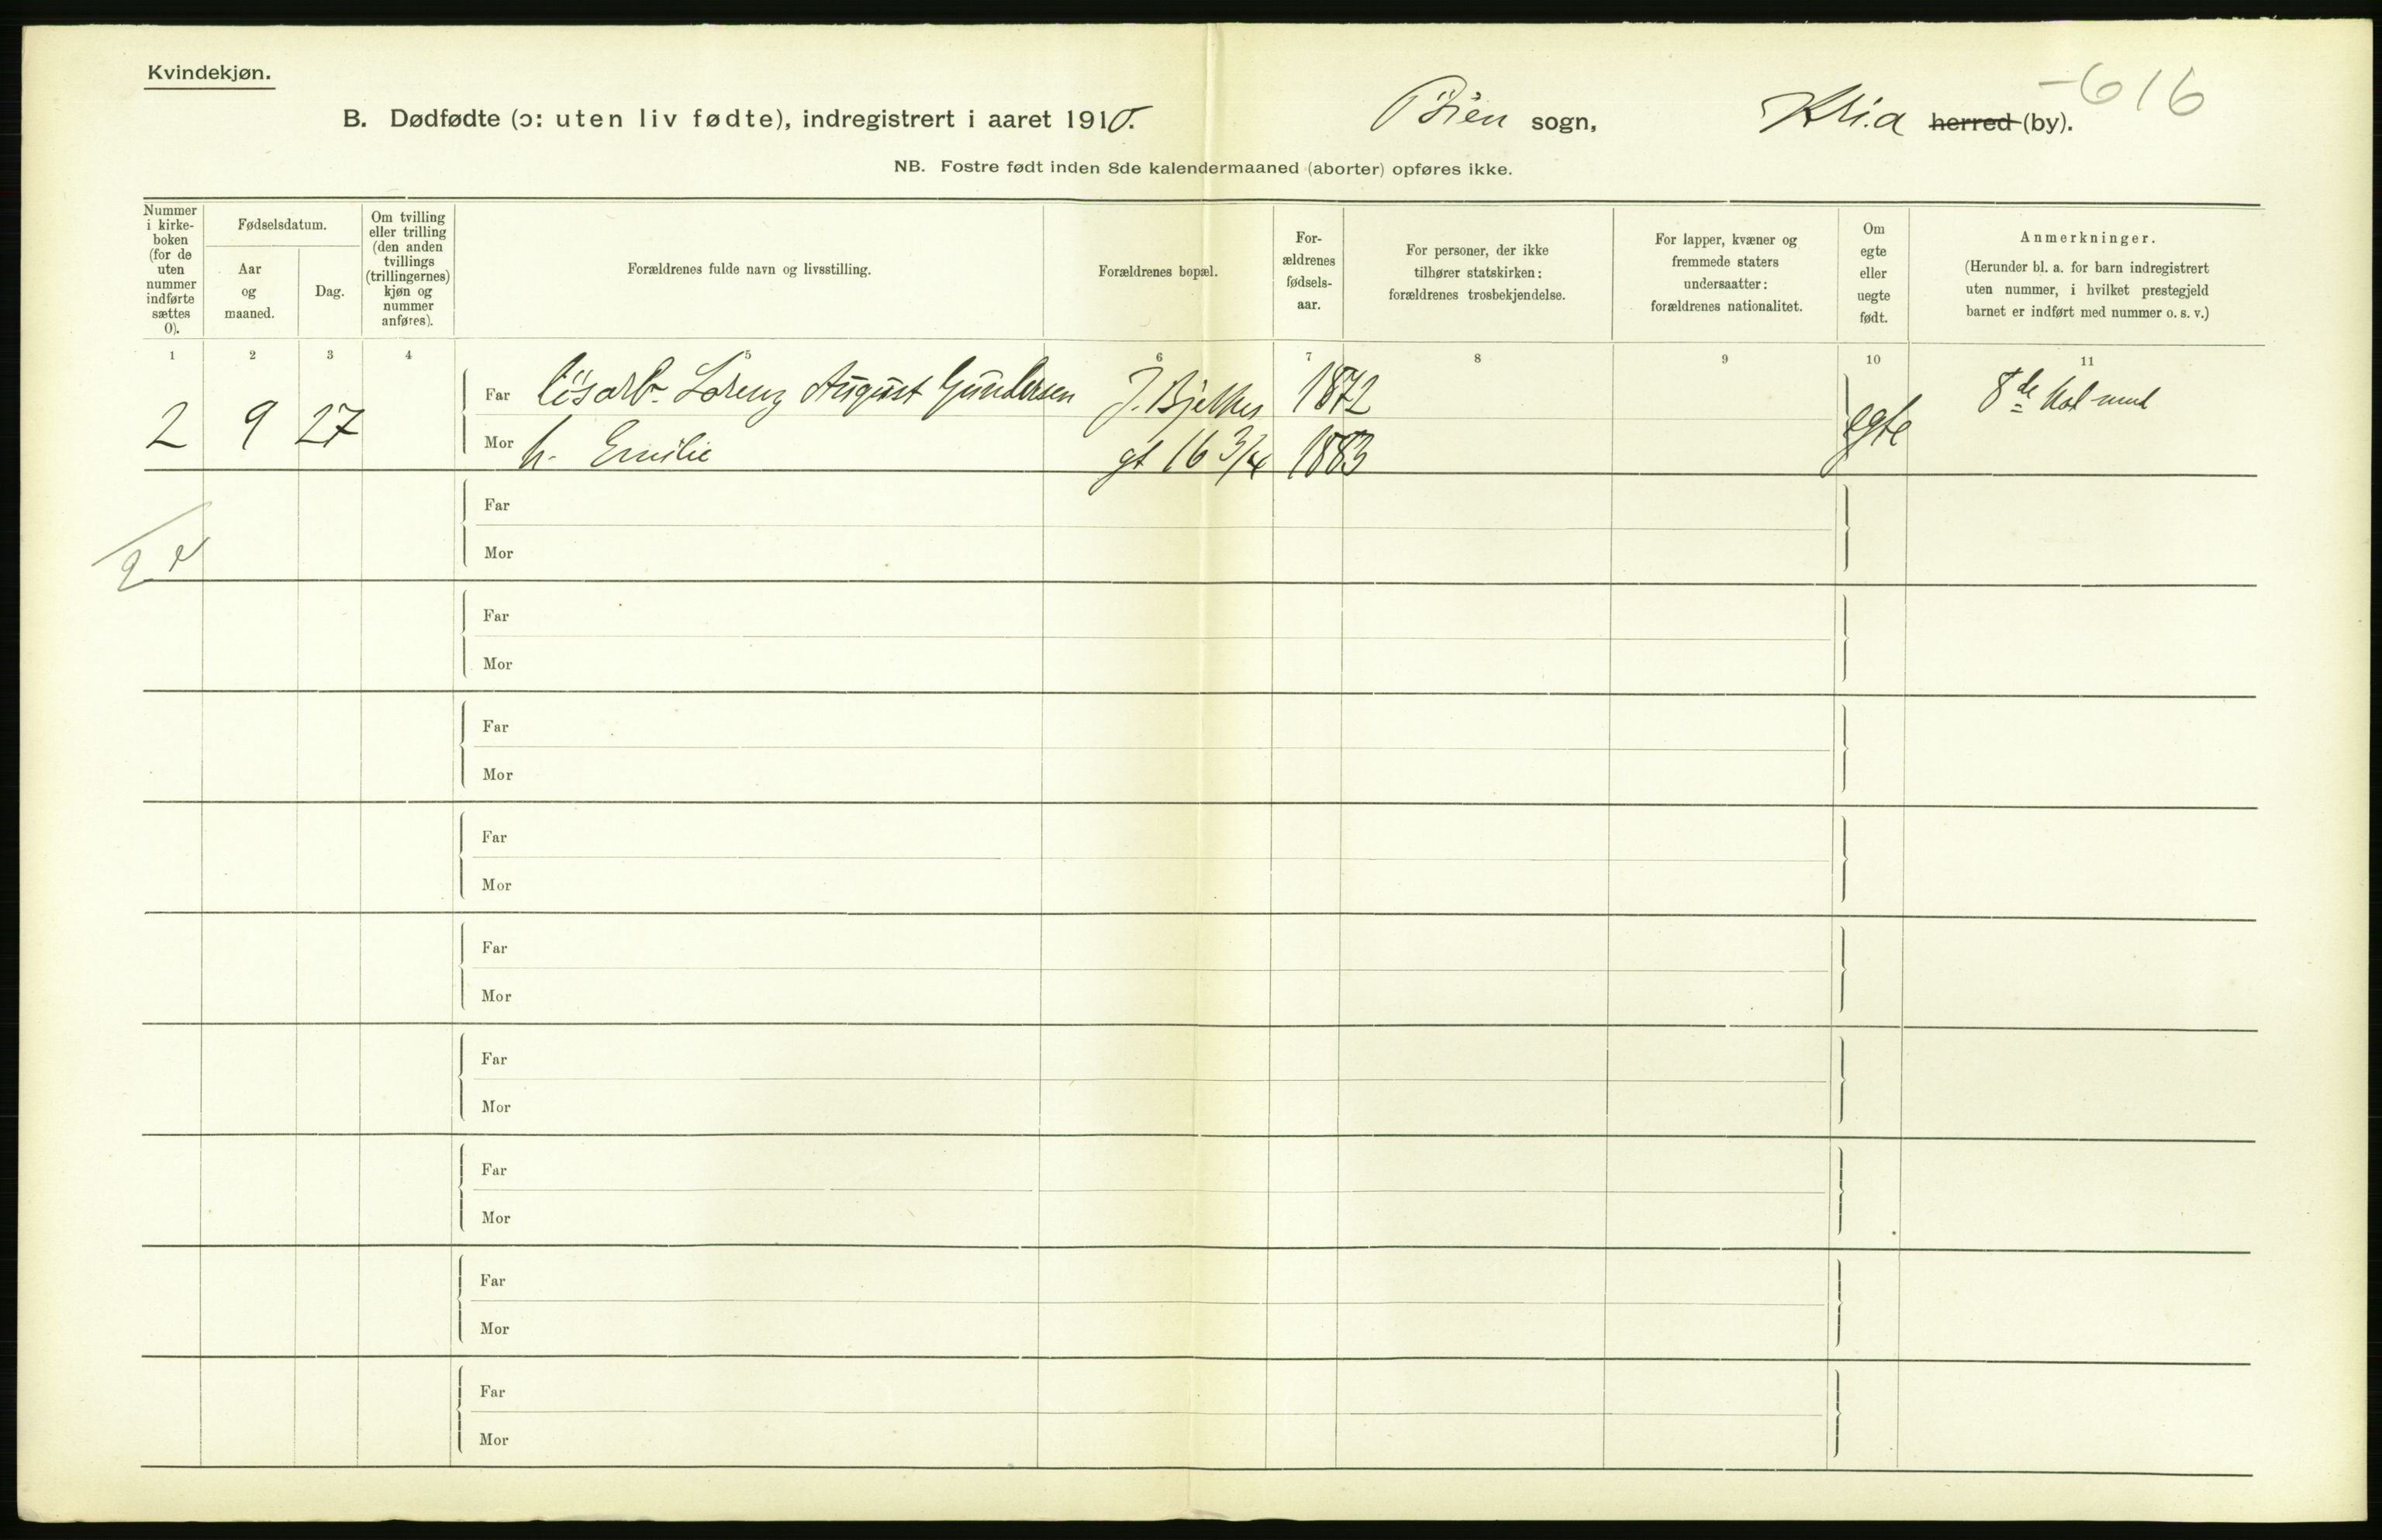 Kvindekjøn.
-616
B. Dødfødte (ɔ: uten liv fødte), indregistrert i aaret 1910. sogn, Kr.a herred (by).
NB. Fostre født inden 8de kalendermaaned (aborter) opføres ikke.
Nummer i kirke-boken (for de uten nummer indførte sættes 0).
Fødselsdatum.
Aar og maaned.
Dag.
Om tvilling eller trilling (den anden tvillings (trillingernes) kjøn og nummer anføres).
Forældrenes fulde navn og livsstilling.
Forældrenes bopæl.
For-ældrenes fødsels-aar.
For personer, der ikke tilhører statskirken: forældrenes trosbekjendelse.
For lapper, kvæner og fremmede staters undersaatter: forældrenes nationalitet.
Om egte eller uegte født.
Anmerkninger.
(Herunder bl. a. for barn indregistrert uten nummer, i hvilket prestegjeld barnet er indført med nummer o. s. v.)
1 2 3 4 5 6 7 8 9 10 11
Far løsarb. Lorenz August Gundersen J. Bjelkes 1872
2 9 27 egte 8de kal
Mor h. Emilie gt 16 3/4 1883
Far
Mor
Far
Mor
Far
Mor
Far
Mor
Far
Mor
Far
Mor
Far
Mor
Far
Mor
Far
Mor